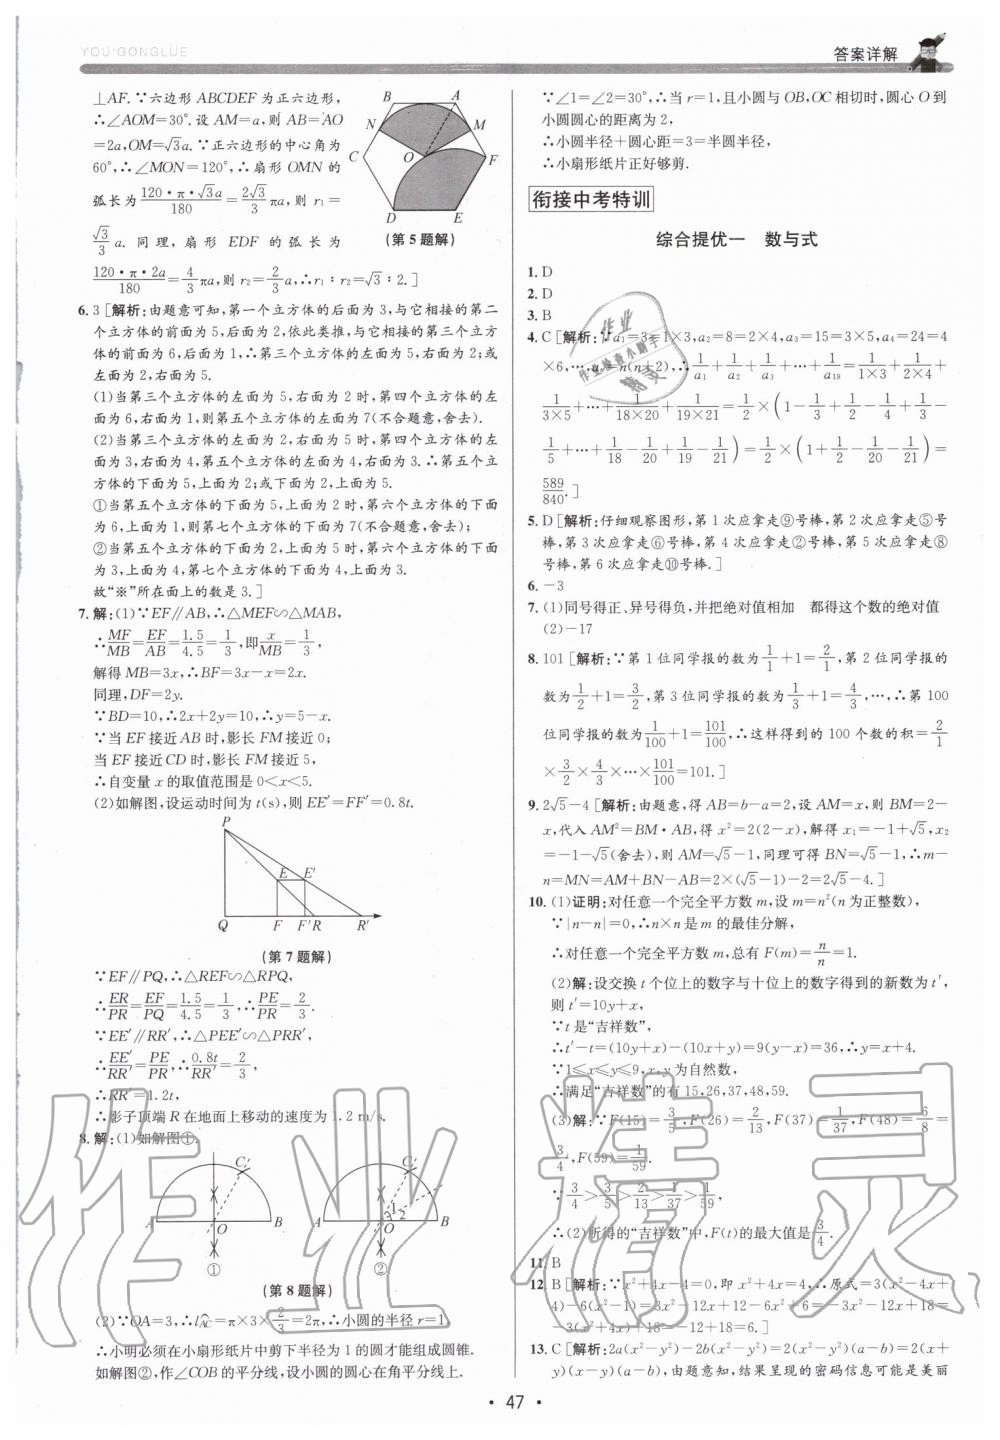 YOU+GONGLÜE
答案详解
⊥AF.∵六边形 ABCDEF 为正六边形,
∴∠AOM=30°.设 AM=a,则 AB=AO
=2a,OM=√3a.∵正六边形的中心角为
60°,∴∠MON=120°,∴扇形 OMN 的
弧长为120·π·√3a/180=2√3/3πa,则 r₁=
√3/3a.同理,扇形 EDF 的弧长为
120·π·2a/180=4/3πa,则 r₂=2/3a,∴r₁∶r₂=√3∶2.]
B A N M C O F D E
(第 5 题解)
6. 3 [解析:由题意可知,第一个立方体的后面为 3,与它相接的第二
个立方体的前面为 5,后面为 2,依此类推,与它相接的第三个立方
体的前面为 5,后面为 1,∴第三个立方体的左面为 5,右面为 2;或
左面为 2,右面为 5.
(1)当第三个立方体的左面为 5,右面为 2 时,第四个立方体的左面
为 6,右面为 1,则第五个立方体的左面为 7(不合题意,舍去).
(2)当第三个立方体的左面为 2,右面为 5 时,第四个立方体的左面
为 3,右面为 4,第五个立方体的左面为 4,右面为 3.∴第五个立方
体的下面为 5,上面为 2;或下面为 2,上面为 5.
①当第五个立方体的下面为 5,上面为 2 时,第六个立方体的下面
为 6,上面为 1,则第七个立方体的下面为 7(不合题意,舍去);
②当第五个立方体的下面为 2,上面为 5 时,第六个立方体的下面
为 3,上面为 4,第七个立方体的下面为 4,上面为 3.
故“※”所在面上的数是 3.]
7. 解:(1)∵EF∥AB,∴△MEF∽△MAB,
∴MF/MB=EF/AB=1.5/4.5=1/3,即x/MB=1/3,
解得 MB=3x,∴BF=3x−x=2x.
同理,DF=2y.
∵BD=10,∴2x+2y=10,∴y=5−x.
∵当 EF 接近 AB 时,影长 FM 接近 0;
当 EF 接近 CD 时,影长 FM 接近 5,
∴自变量 x 的取值范围是 0<x<5.
(2)如解图,设运动时间为 t(s),则 EE′=FF′=0.8t.
P E E′ Q F F′ R R′
(第 7 题解)
∵EF∥PQ,∴△REF∽△RPQ,
∴ER/PR=EF/PQ=1.5/4.5=1/3,∴PE/PR=2/3.
∵EE′∥RR′,∴△PEE′∽△PRR′,
∴EE′/RR′=PE/PR,∴0.8t/RR′=2/3,
∴RR′=1.2t,
∴影子顶端 R 在地面上移动的速度为 1.2 m/s.
8. 解:(1)如解图①.
C′ A O B ①
C′ A O B 1 2 ②
(第 8 题解)
(2)∵OA=3,∴l AC′=π×3×2/3=2π,∴小圆的半径 r=1
∴小明必须在小扇形纸片中剪下半径为 1 的圆才能组成圆锥.
如解图②,作∠COB 的平分线,设小圆的圆心在角平分线上.
∵∠1=∠2=30°,∴当 r=1,且小圆与 OB,OC 相切时,圆心 O 到
小圆圆心的距离为 2,
∴小圆半径+圆心距=3=半圆半径,
∴小扇形纸片正好够剪.
衔接中考特训
综合提优一 数与式
1. D
2. D
3. B
4. C [解析:∵a₁=3=1×3,a₂=8=2×4,a₃=15=3×5,a₄=24=4
×6,…,aₙ=n(n+2),∴1/a₁+1/a₂+1/a₃+…+1/a₁₉=1/(1×3)+1/(2×4)+
1/(3×5)+…+1/(18×20)+1/(19×21)=1/2×(1−1/3+1/2−1/4+1/3−
1/5+…+1/18−1/20+1/19−1/21)=1/2×(1+1/2−1/20−1/21)=
589/840.]
5. D [解析:仔细观察图形,第 1 次应拿走⑨号棒,第 2 次应拿走⑤号
棒,第 3 次应拿走⑥号棒,第 4 次应拿走②号棒,第 5 次应拿走⑧
号棒,第 6 次应拿走⑩号棒.]
6. −3
7. (1)同号得正、异号得负,并把绝对值相加 都得这个数的绝对值
(2)−17
8. 101 [解析:∵第 1 位同学报的数为1/1+1=2/1,第 2 位同学报的
数为1/2+1=3/2,第 3 位同学报的数为1/3+1=4/3,…,∴第 100
位同学报的数为1/100+1=101/100,∴这样得到的 100 个数的积=2/1
×3/2×4/3×…×101/100=101.]
9. 2√5−4 [解析:由题意,得 AB=b−a=2,设 AM=x,则 BM=2−
x,代入 AM²=BM·AB,得 x²=2(2−x),解得 x₁=−1+√5,x₂
=−1−√5(舍去),则 AM=√5−1,同理可得 BN=√5−1,∴m−
n=MN=AM+BN−AB=2×(√5−1)−2=2√5−4.]
10. (1)证明:对任意一个完全平方数 m,设 m=n²(n 为正整数),
∵|n−n|=0,∴n×n 是 m 的最佳分解,
∴对任意一个完全平方数 m,总有 F(m)=n/n=1.
(2)解:设交换 t 个位上的数字与十位上的数字得到的新数为 t′,
则 t′=10y+x,
∵t 是“吉祥数”,
∴t′−t=(10y+x)−(10x+y)=9(y−x)=36,∴y=x+4.
∵1≤x≤y≤9,x,y 为自然数,
∴满足“吉祥数”的有 15,26,37,48,59.
(3)解:∵F(15)=3/5,F(26)=2/13,F(37)=1/37,F(48)=6/8=
3/4,F(59)=1/59.
∵3/4>3/5>2/13>1/37>1/59,
∴(2)所得的“吉祥数”中,F(t)的最大值是3/4.
11. B
12. B [解析:∵x²+4x−4=0,即 x²+4x=4,∴原式=3(x²−4x+
4)−6(x²−1)=3x²−12x+12−6x²+6=−3x²−12x+18=
−3(x²+4x)+18=−12+18=6.]
13. C [解析:2a(x²−y²)−2b(x²−y²)=2(x²−y²)(a−b)=2(x+
y)(x−y)(a−b),由题意知,结果呈现的密码信息可能是美丽
• 47 •
作业
作业检查小助手
精灵
作业精灵